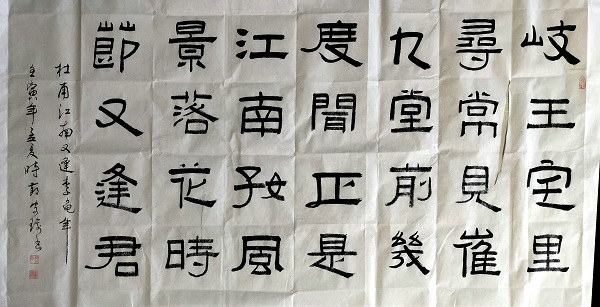 岐王宅里
尋常見崔
九堂前幾
度聞正是
江南好風
景落花時
節又逢君
杜甫江南又逢李龟年
壬寅年孟夏時